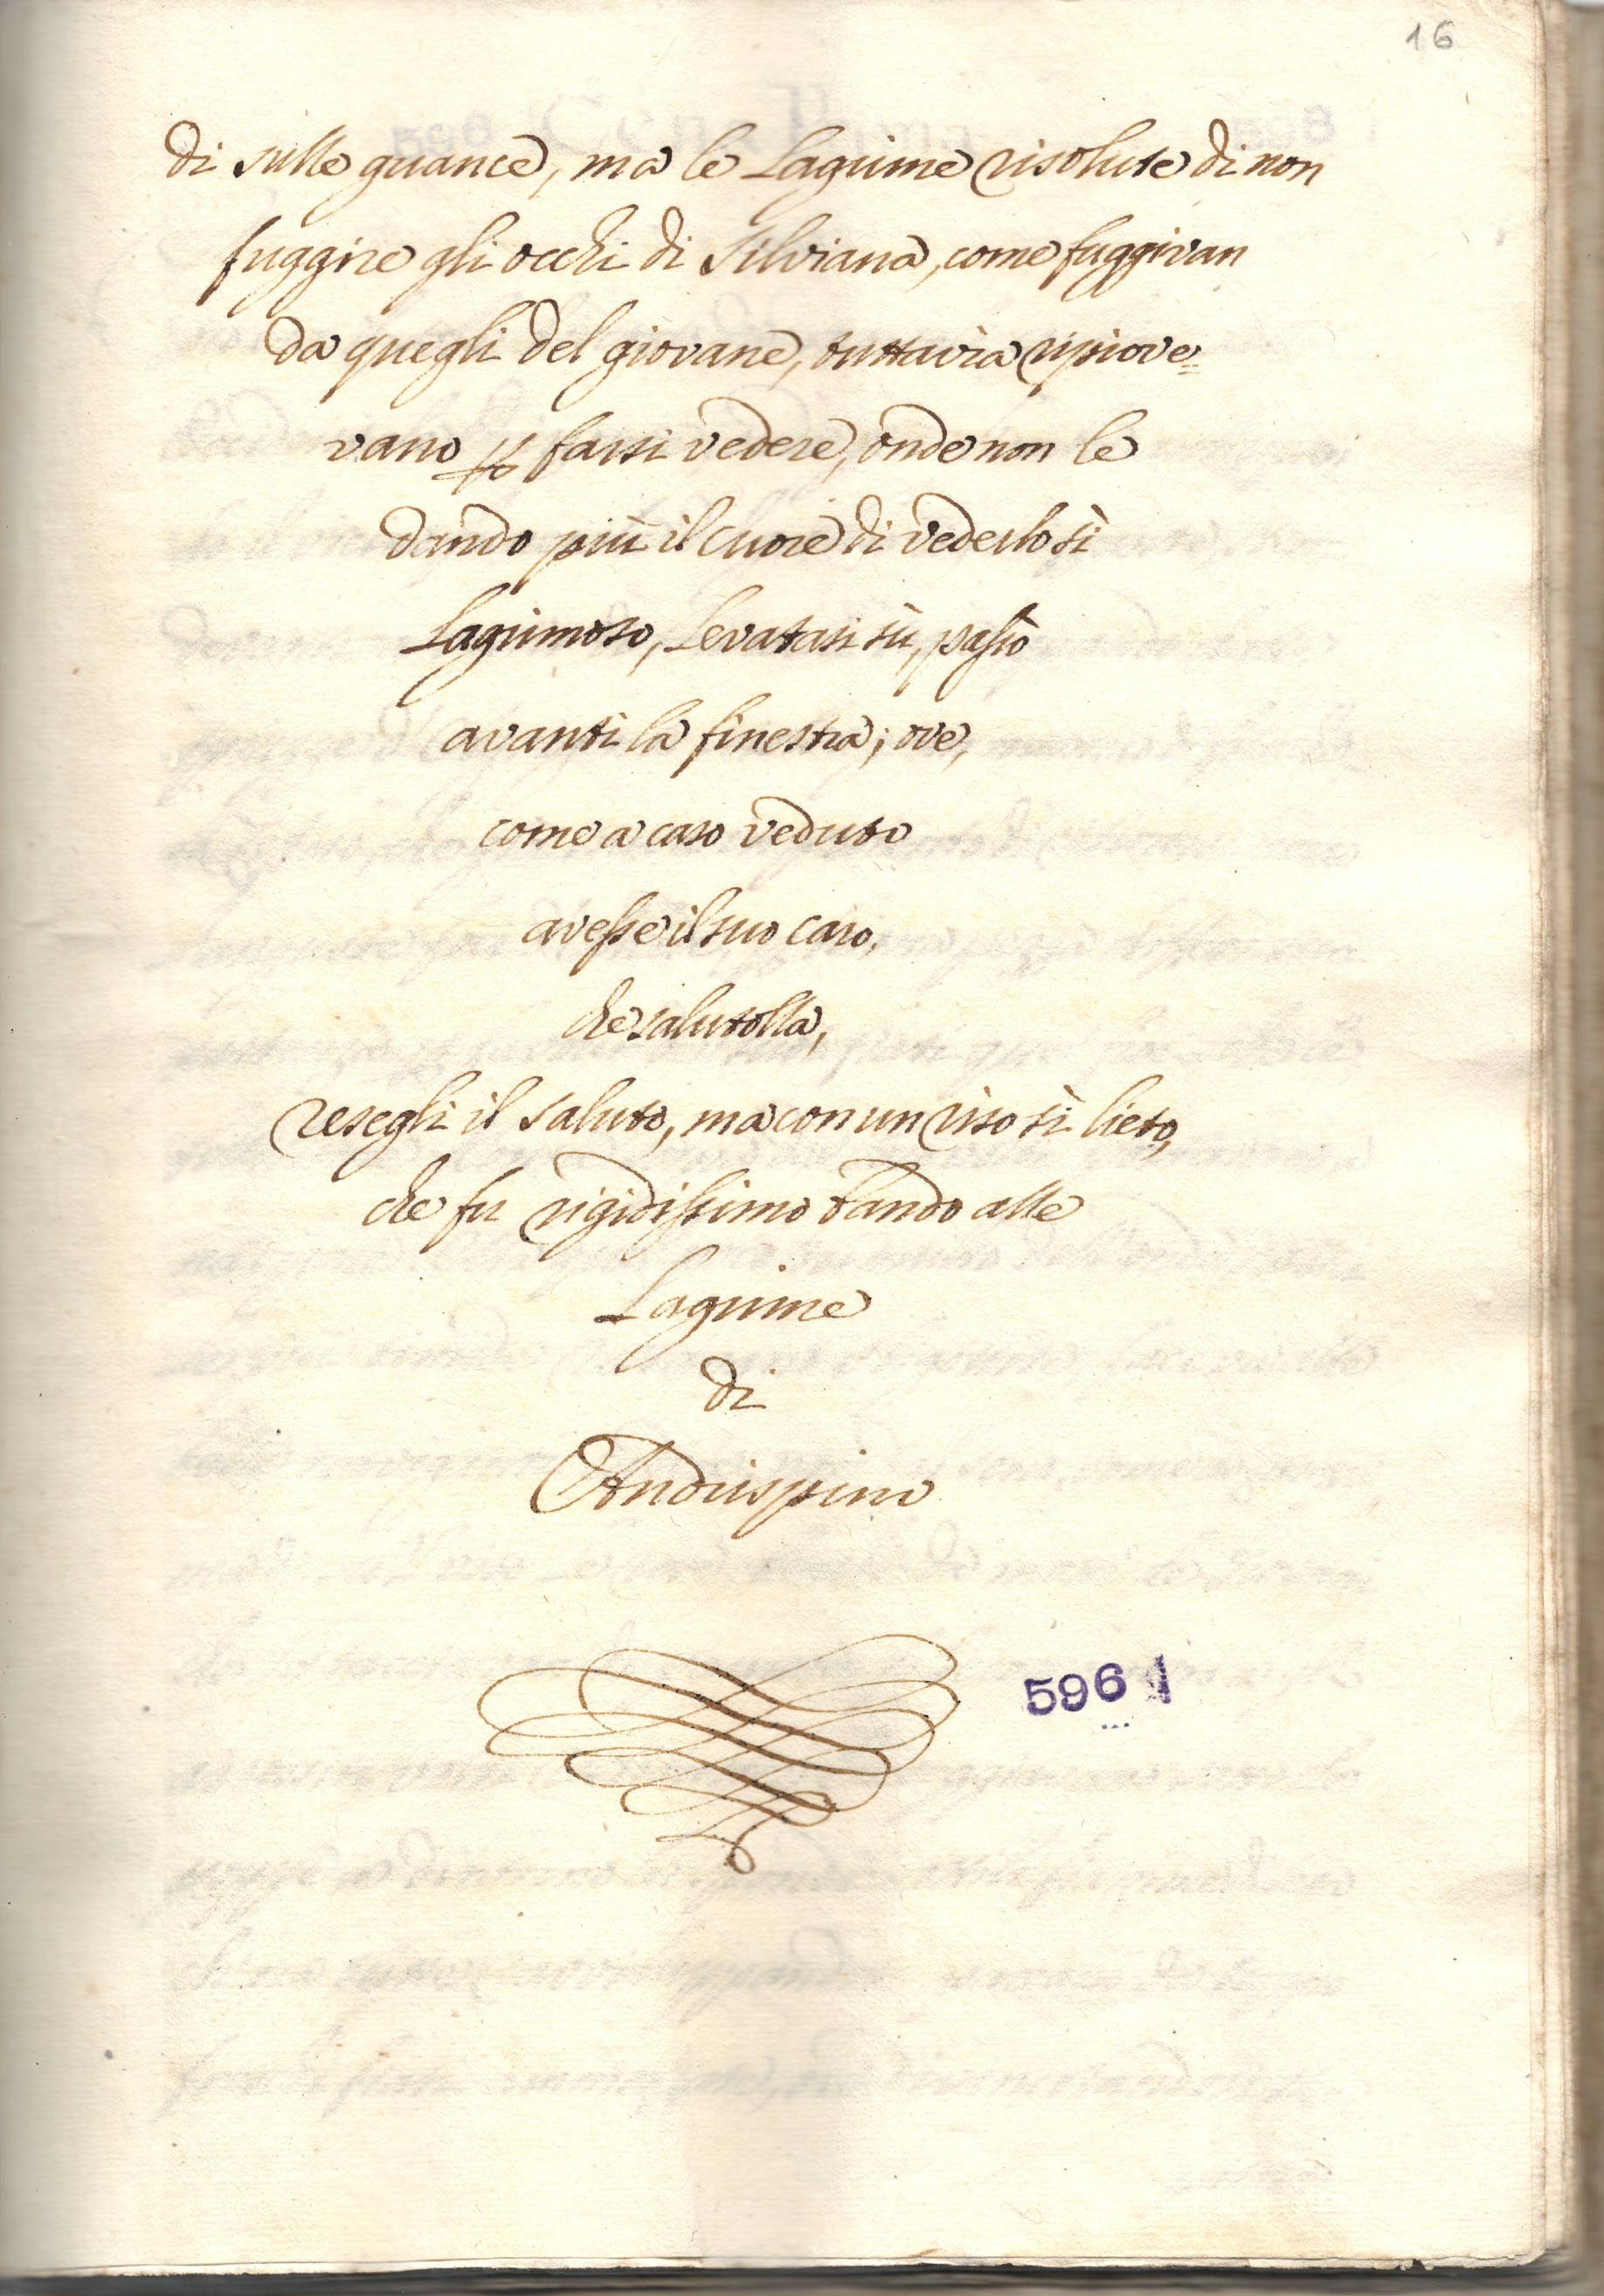 16
di sulle guance, ma le Lagrime risolute di non
fuggire gli occhi di Silviana, come fuggivan
da quegli del giovane, tuttavia ripiove=
vano ꝑ farsi vedere, onde non le
dando più il cuore di vederlo sì
Lagrimoso, Levatasi sù, passò
avanti la finestra; ove,
come a caso veduto
avesse il suo caro,
che salutolla,
resegli il saluto, ma con un viso sì lieto,
che fu rigidissimo bando alle
Lagrime
di
Andrispino
596